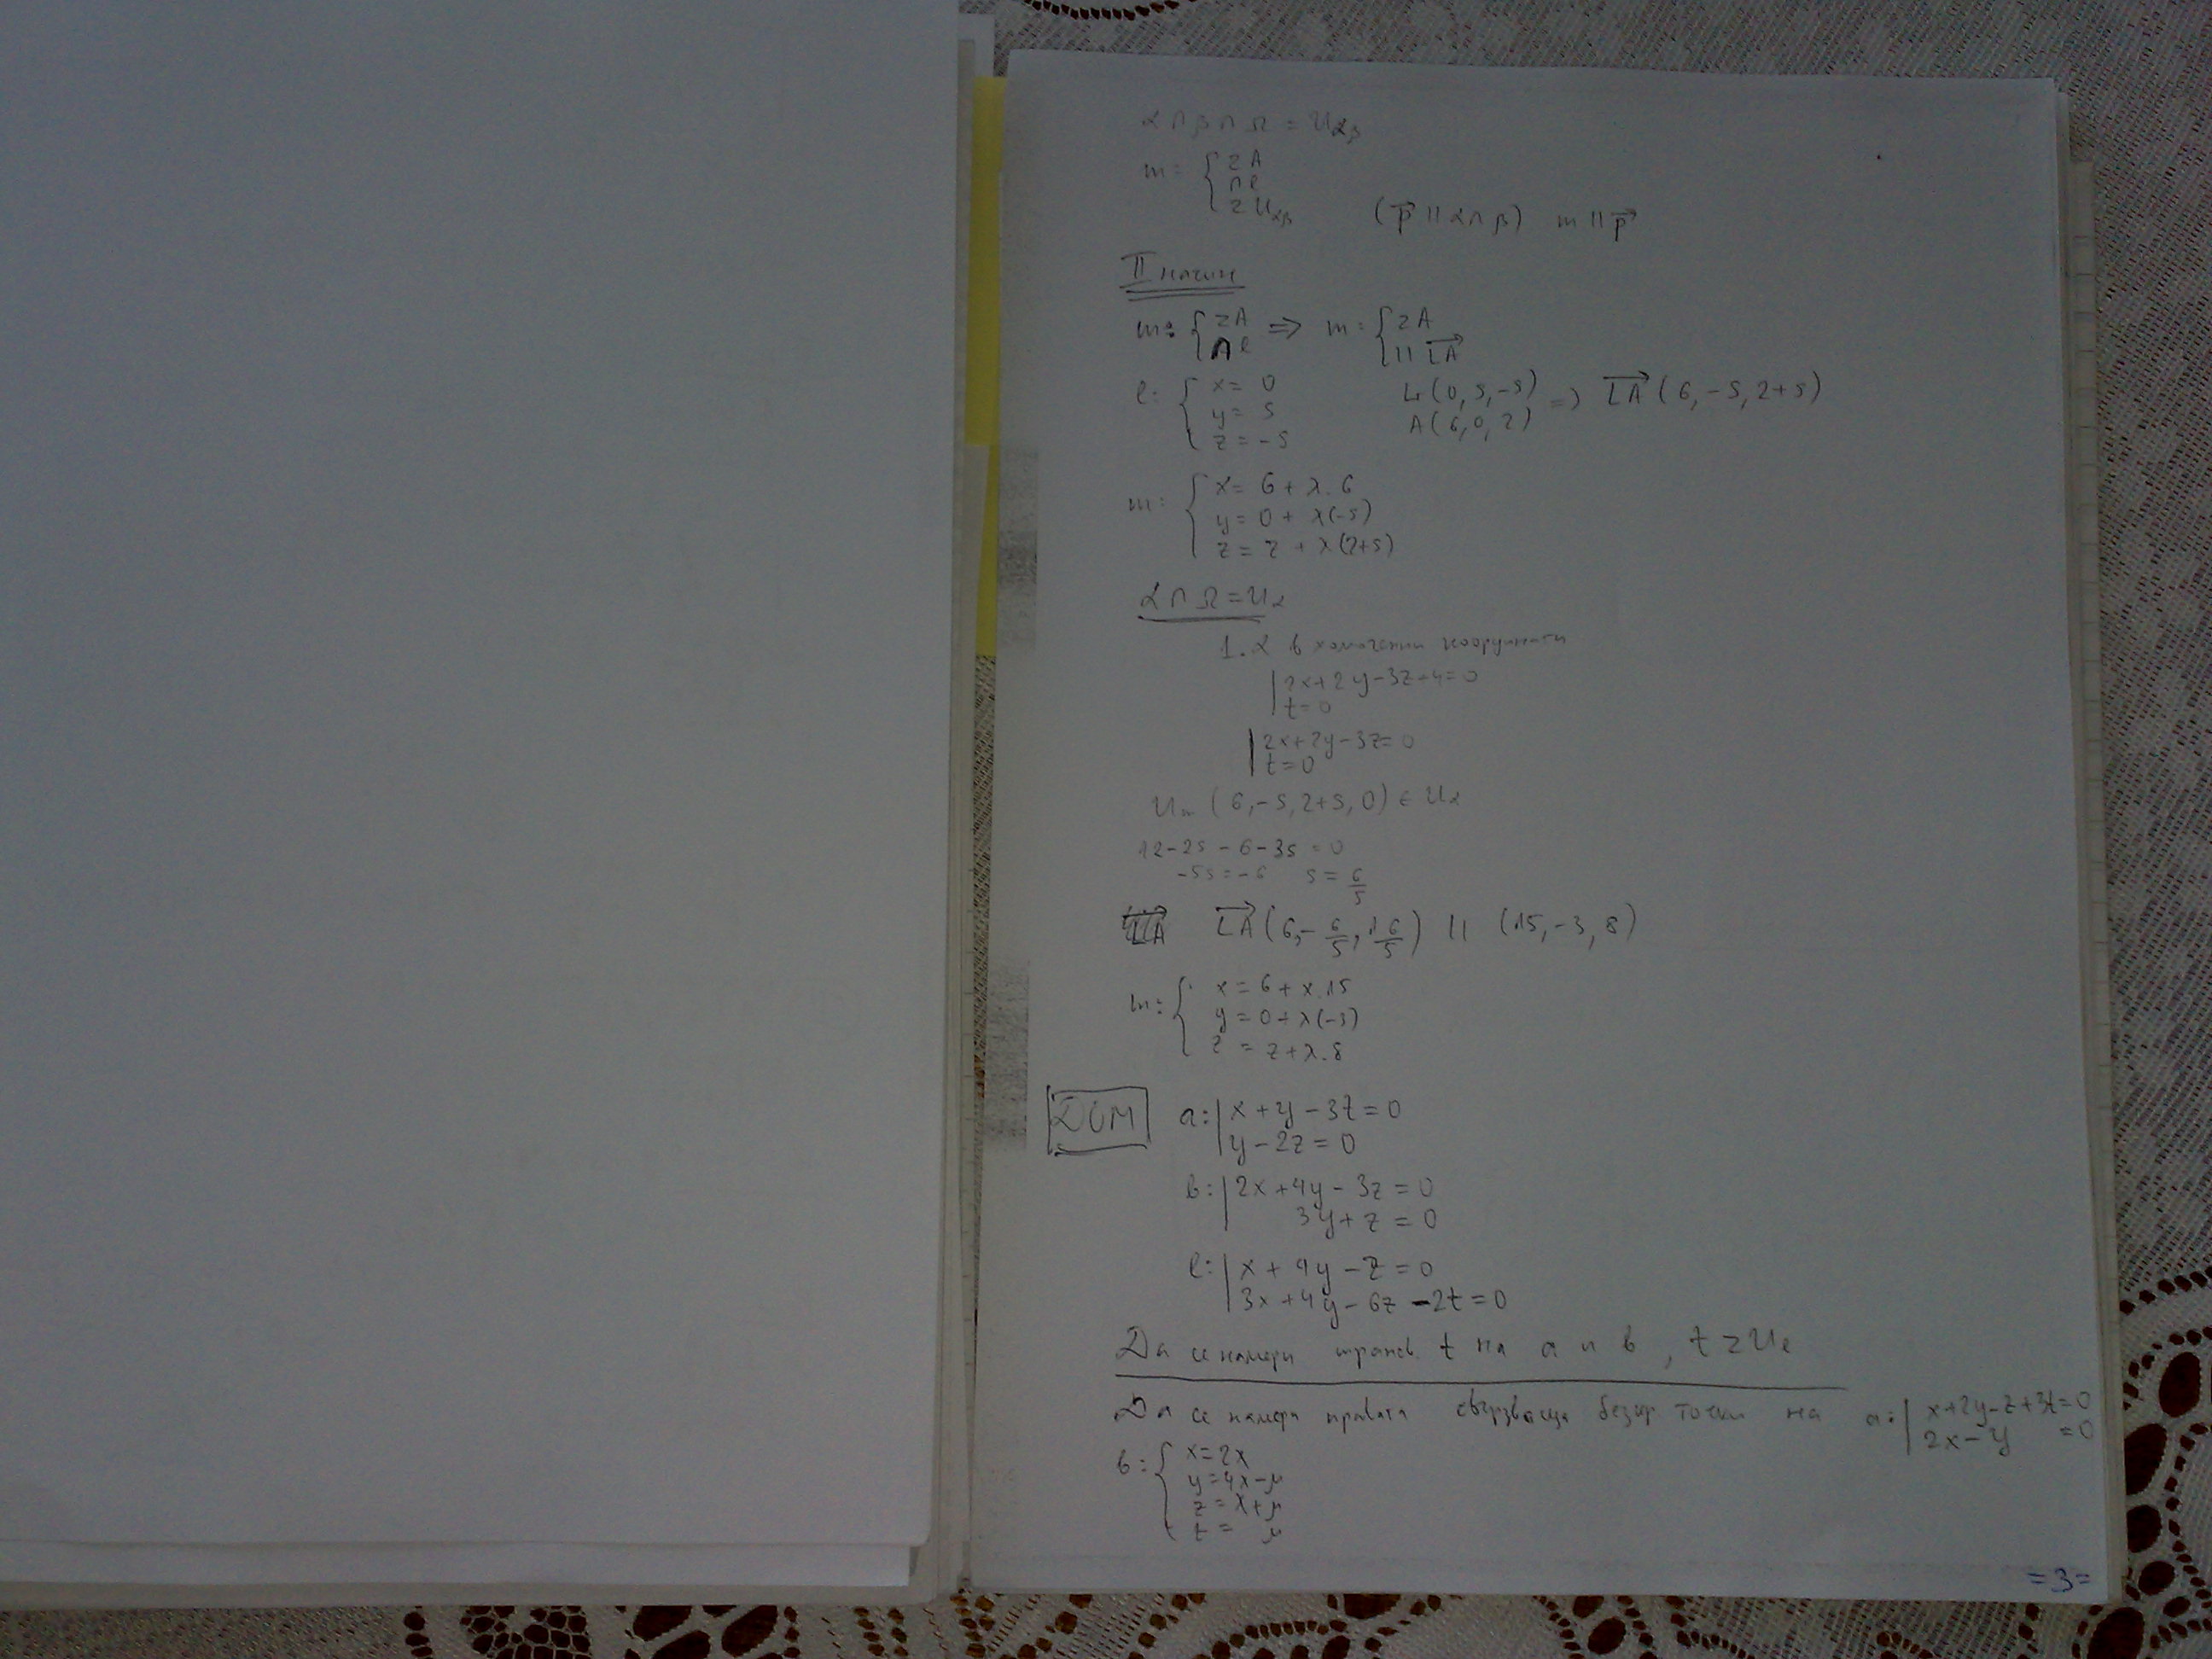 α ∩ β ∩ Ω = Uαβ
m: { z A
∩ l
z Uαβ (p⃗ || α ∩ β) m || p⃗
II начин
m: { z A ⇒ m: { z A
∩ l || LA⃗
l: { x = 0
y = s
z = -s
L(0, s, -s)
A(6, 0, 2) => LA⃗ (6, -s, 2+s)
m: { x = 6 + λ.6
y = 0 + λ(-s)
z = 2 + λ(2+s)
α ∩ Ω = Uα
1. α в хомогенни координати
| 2x+2y-3z+4=0
t=0
| 2x+2y-3z=0
t=0
Um (6, -s, 2+s, 0) ∈ Uα
12-2s-6-3s = 0
-5s = -6 s = 6/5
LA⃗ (6, -6/5, 16/5) || (15, -3, 8)
m: { x = 6 + λ.15
y = 0 + λ(-3)
z = z + λ.8
ДОМ a: | x + y - 3t = 0
y - 2z = 0
b: | 2x + 4y - 3z = 0
3y + z = 0
l: | x + 4y - z = 0
3x + 4y - 6z - 2t = 0
Да се намери трансв. t на a и b, t z Ul
Да се намери правата свързваща безкр. точки на a: | x+2y-z+3t=0
2x-y =0
b: { x = 2λ
y = 4λ-μ
z = λ+μ
t = μ
=3=